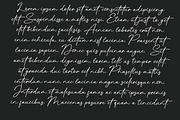 Lorem ipsum dolor sit amet, consectetur adipiscing
elit. Suspendisse a mattis nisi. Etiam at justo et
elit bibendum facilisis. Aenean lobortis erat
non enim vehicula, eu dictum nisl lacinia. Praesent ut
lacinia sapien. Donec quis pulvinar augue. Sed
ut bibendum dignissim, lorem tellus tempor elit,
at gravida dui tortor in nibh. Phasellus mattis
interdum nunc, nec lacinia magna scelerisque non.
Interdum et malesuada fames ac ante ipsum primis
in faucibus. Maecenas posuere et quam a tincidunt.